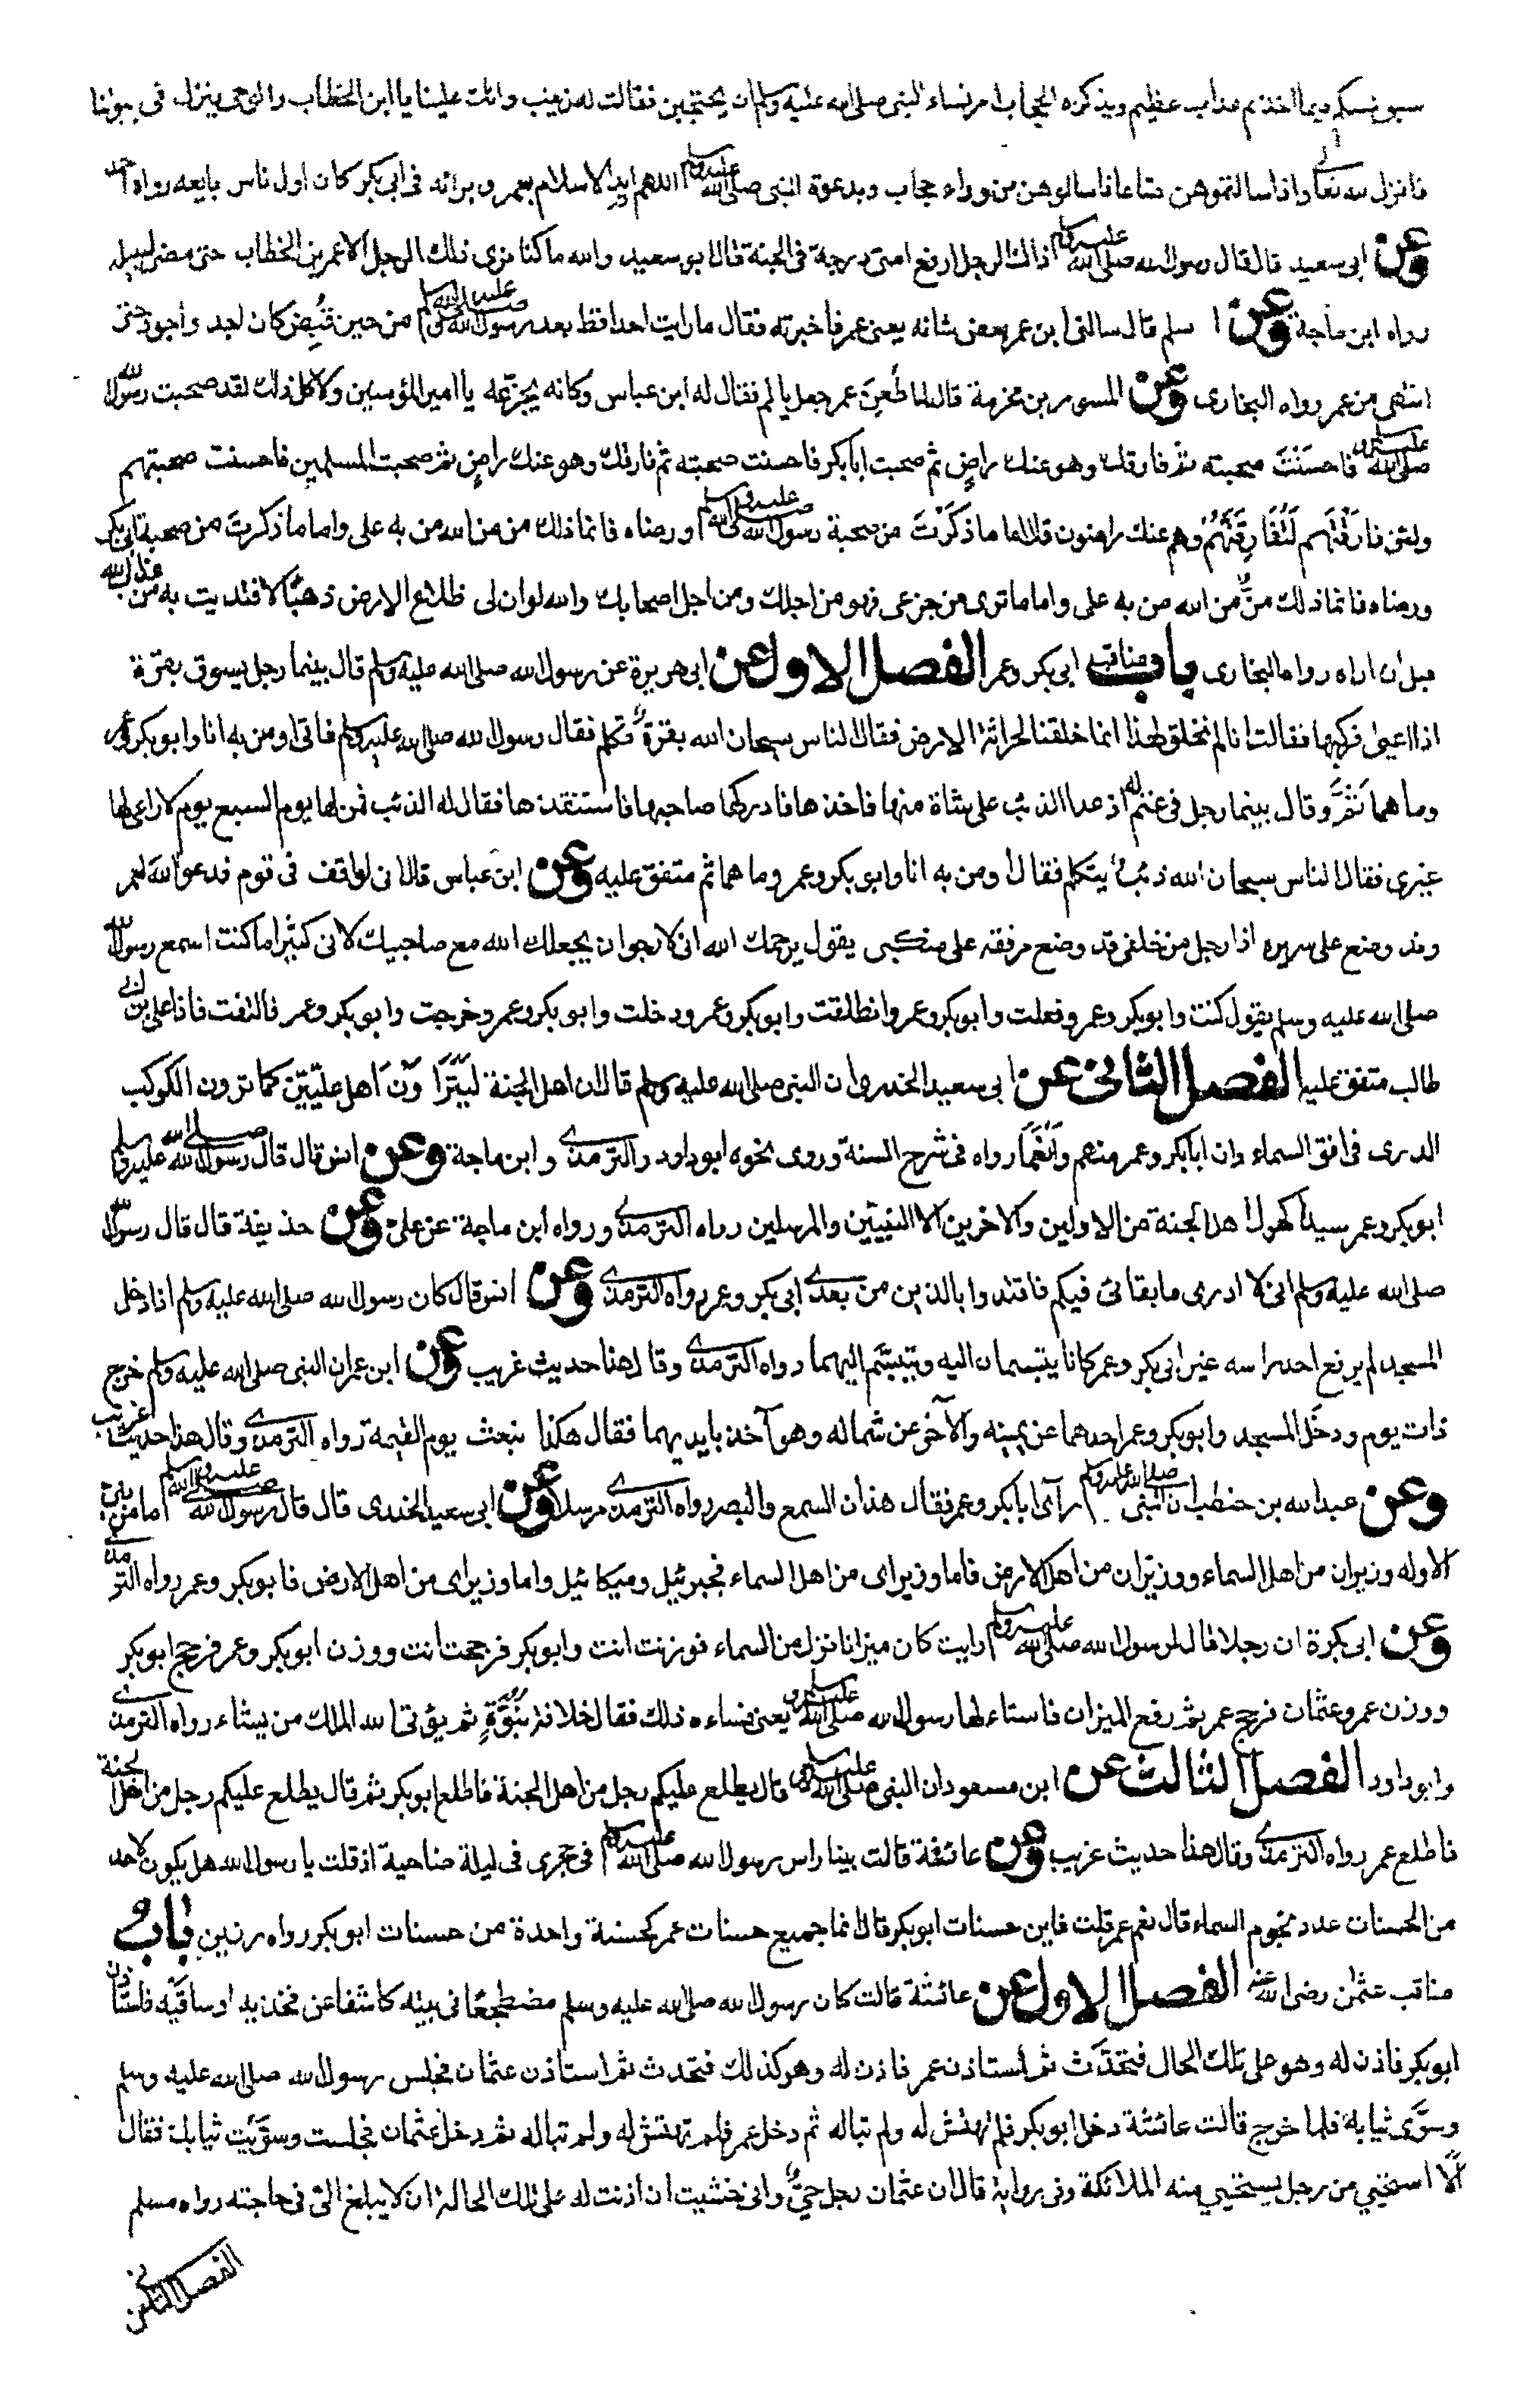 سبق لمسكم فيما اخذتم عذاب عظيم وبذكره الحجاب امر نساء النبى صلى الله عليه وسلم ان يحتجبن فقالت له زينب وانك علينا يا ابن الخطاب والوحى ينزل فى بيوتنا
فانزل الله تعالى واذا سالتموهن متاعا فاسالوهن من وراء حجاب وبدعوة النبى صلى الله عليه وسلم اللهم ايد الاسلام بعمر وبرائه فى ابى بكر كان اول ناس بايعه رواه احمد
وعن ابى سعيد قال قال رسول الله صلى الله عليه وسلم ذاك الرجل ارفع امتى درجة فى الجنة قال ابو سعيد والله ما كنا نرى ذلك الرجل الا عمر بن الخطاب حتى مضى لسبيله
رواه ابن ماجة وعن اسلم قال سالنى ابن عمر بعض شانه يعنى عمر فاخبرته فقال ما رايت احدا قط بعد رسول الله صلى الله عليه وسلم من حين قُبِض كان اجد واجود حتى
انتهى من عمر رواه البخارى وعن المسور بن مخرمة قال لما طُعِنَ عمر جعل يالم فقال له ابن عباس وكانه يجزّعه يا امير المؤمنين ولا كل ذلك لقد صحبت رسول الله
صلى الله عليه وسلم فاحسَنْتَ صحبته ثم فارقك وهو عنك راضٍ ثم صحبت ابا بكر فاحسنت صحبته ثم فارقك وهو عنك راضٍ ثم صحبت المسلمين فاحسنت صحبتهم
ولئن فارَقْتَهم لَتُفَارِقَنَّهُمْ وهم عنك راضون قال اما ما ذكَرْتَ من صحبة رسول الله صلى الله عليه وسلم ورضاه فانما ذلك من من الله من به على واما ما ذكرتَ من صحبة ابى بكر
ورضاه فانما ذلك منٌّ من الله من به على واما ما ترى من جزعى فهو من اجلك ومن اجل اصحابك والله لو ان لى طلاع الارض ذهبًا لافتديت به من عذاب الله
قبل ان اراه رواه البخارى باب مناقب ابى بكر وعمر الفصل الاول عن ابى هريرة عن رسول الله صلى الله عليه وسلم قال بينما رجل يسوق بقرة
اذا اعيى فركبها فقالت انا لم نخلق لهذا انما خلقنا لحراثة الارض فقال الناس سبحان الله بقرةٌ تكلم فقال رسول الله صلى الله عليه وسلم فانى اومن به انا وابو بكر وعمر
وما هما ثَمَّ وقال بينما رجل فى غنم له اذ عدا الذئب على شاة منها فاخذها فادركها صاحبها فاستنقذها فقال له الذئب فمن لها يوم السبع يوم لا راعى لها
غيرى فقال الناس سبحان الله ذئبٌ يتكلم فقال اومن به انا وابو بكر وعمر وما هما ثم متفق عليه وعن ابن عباس قال انى لواقف فى قوم فدعوا الله لعمر
وقد وضع على سريره اذا رجل من خلفى قد وضع مرفقه على منكبى يقول يرحمك الله انى لارجو ان يجعلك الله مع صاحبيك لانى كثيرا ما كنت اسمع رسول الله
صلى الله عليه وسلم يقول كنت وابو بكر وعمر وفعلت وابو بكر وعمر وانطلقت وابو بكر وعمر ودخلت وابو بكر وعمر وخرجت وابو بكر وعمر فالتفت فاذا على بن ابى
طالب متفق عليه الفصل الثانى عن ابى سعيد الخدرى ان النبى صلى الله عليه وسلم قال ان اهل الجنة ليَتَرَاوْنَ اهل عِلِّيِّيْنَ كما ترون الكوكب
الدرى فى افق السماء وان ابا بكر وعمر منهم وانْعَمَا رواه فى شرح السنة وروى نحوه ابو داود والترمذى وابن ماجة وعن انس قال قال رسول الله صلى الله عليه وسلم
ابو بكر وعمر سيدا كهول اهل الجنة من الاولين والاخرين الا النبيّين والمرسلين رواه الترمذى ورواه ابن ماجة عن علىّ وعن حذيفة قال قال رسول الله
صلى الله عليه وسلم انى لا ادرى ما بقائى فيكم فاقتدوا بالذين من بعدى ابى بكر وعمر رواه الترمذى وعن انس قال كان رسول الله صلى الله عليه وسلم اذا دخل
المسجد لم يرفع احد راسه غير ابى بكر وعمر كانا يتبسمان اليه ويتبسّم اليهما رواه الترمذى وقال هذا حديث غريب وعن ابن عمر ان النبى صلى الله عليه وسلم خرج
ذات يوم ودخَل المسجد وابو بكر وعمر احدهما عن يمينه والآخر عن شماله وهو آخذ بايديهما فقال هكذا نبعث يوم القيمة رواه الترمذى وقال هذا حديث غريب
وعن عبد الله بن حنطب ان النبى صلى الله عليه وسلم رآى ابا بكر وعمر فقال هذان السمع والبصر رواه الترمذى مرسلا وعن ابى سعيد الخدرى قال قال رسول الله صلى الله عليه وسلم ما من نبى
الا وله وزيران من اهل السماء ووزيران من اهل الارض فاما وزيراى من اهل السماء فجبرئيل وميكائيل واما وزيراى من اهل الارض فابو بكر وعمر رواه الترمذى
وعن ابى بكرة ان رجلا قال لرسول الله صلى الله عليه وسلم رايت كان ميزانا نزل من السماء فوزنت انت وابو بكر فرجحت انت ووزن ابو بكر وعمر فرجح ابو بكر
ووزن عمر وعثمان فرجح عمر ثم رفع الميزان فاستاء لها رسول الله صلى الله عليه وسلم يعنى فساءه ذلك فقال خلافة نُبُوَّةٍ ثم يؤتى الله الملك من يشاء رواه الترمذى
وابو داود الفصل الثالث عن ابن مسعود ان النبى صلى الله عليه وسلم قال يطلع عليكم رجل من اهل الجنة فاطلع ابو بكر ثم قال يطلع عليكم رجل من اهل الجنة
فاطلع عمر رواه الترمذى وقال هذا حديث غريب وعن عائشة قالت بينا راس رسول الله صلى الله عليه وسلم فى حجرى فى ليلة ضاحية اذ قلت يا رسول الله هل يكون لاحد
من الحسنات عدد نجوم السماء قال نعم عمر قلت فاين حسنات ابو بكر قال انما جميع حسنات عمر كحسنة واحدة من حسنات ابو بكر رواه رزين بابُ
مناقب عثمٰن رضى الله عنه الفصل الاول عن عائشة قالت كان رسول الله صلى الله عليه وسلم مضطجعًا فى بيته كاشفا عن فخذيه او ساقَيْه فاستاذن
ابو بكر فاذن له وهو على تلك الحال فتحدَّث ثم استاذن عمر فاذن له وهو كذلك فتحدث ثم استاذن عثمان فجلس رسول الله صلى الله عليه وسلم
وسوَّى ثيابه فلما خرج قالت عائشة دخل ابو بكر فلم تهتش له ولم تباله ثم دخل عمر فلم تهتش له ولم تباله ثم دخل عثمان فجلست وسوَّيت ثيابك فقال
الَا استحيي من رجل يستحيي منه الملائكة وفى رواية قال ان عثمان رجل حيىٌّ وانى خشيت ان اذنت له على تلك الحالة ان لا يبلغ الىّ فى حاجته رواه مسلم
الفصل الثانى